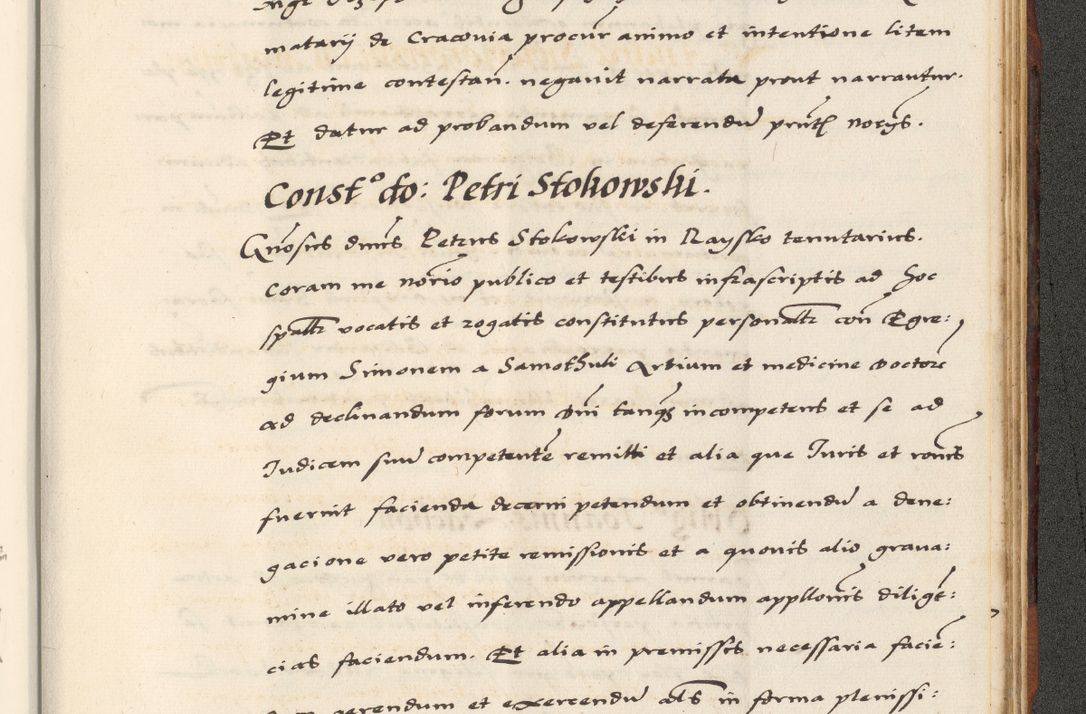 matarÿ de Cracovia procur animo et intentione litem
legitime contestan. negavit narrata prout narrantur.
Et datur ad probandum vel deferendu prntȩ
Constº do: Petri Stokowski.
Gnosus dnus Petrus Stokowski in Raysko tenutarius.
coram me norio publico et testibus infrascriptis ad hoc
spaltr vocatis et rogatis constitutus personaltr con Egre:
gium Simonem a Samothuli Artium et medicine doctore
ad declinandum forum dni tanqȝ incompetens et se ad
Iudicem suu competente remitti et alia que Iuris et ronis
fuerint facienda decerni petendum et obtinendu a dene:
gacione vero petite remissionis et a quovis alio grava:
mine illato vel inferendo appellandum appllonis diligē:
cias faciendum. Et alia in premissis necessaria faciē:
gerendum et exercendu als in forma plenissi: